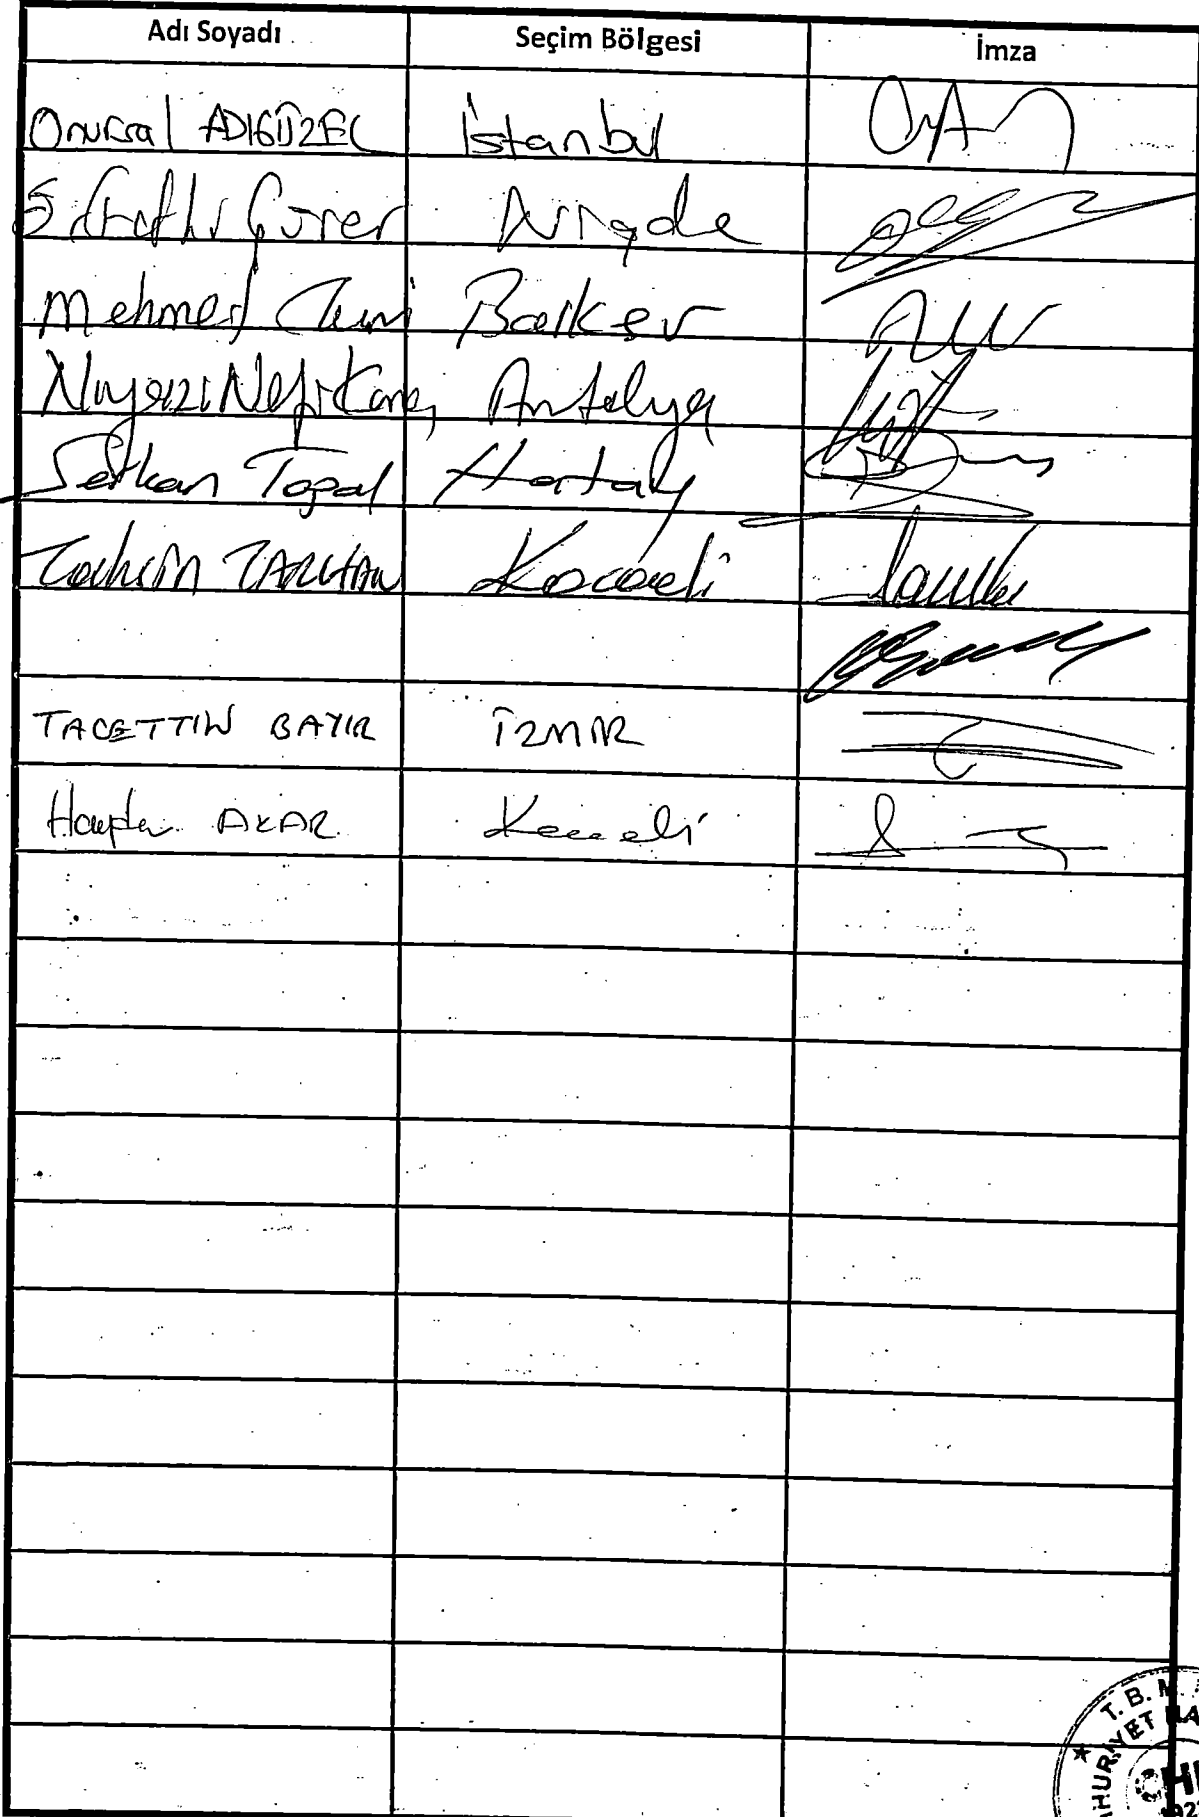 Adı Soyadı Seçim Bölgesi İmza
Onursal ADIGÜZEL İstanbul
Ö. Fethi Gürer Niğde
Mehmet Tüm Balıkesir
Niyazi Nefi Kara Antalya
Serkan Topal Hatay
Tahsin TARHAN Kocaeli
TACETTİN BAYIR İZMİR
Haydar AKAR Kocaeli
T.B.M.
HURİYET HA